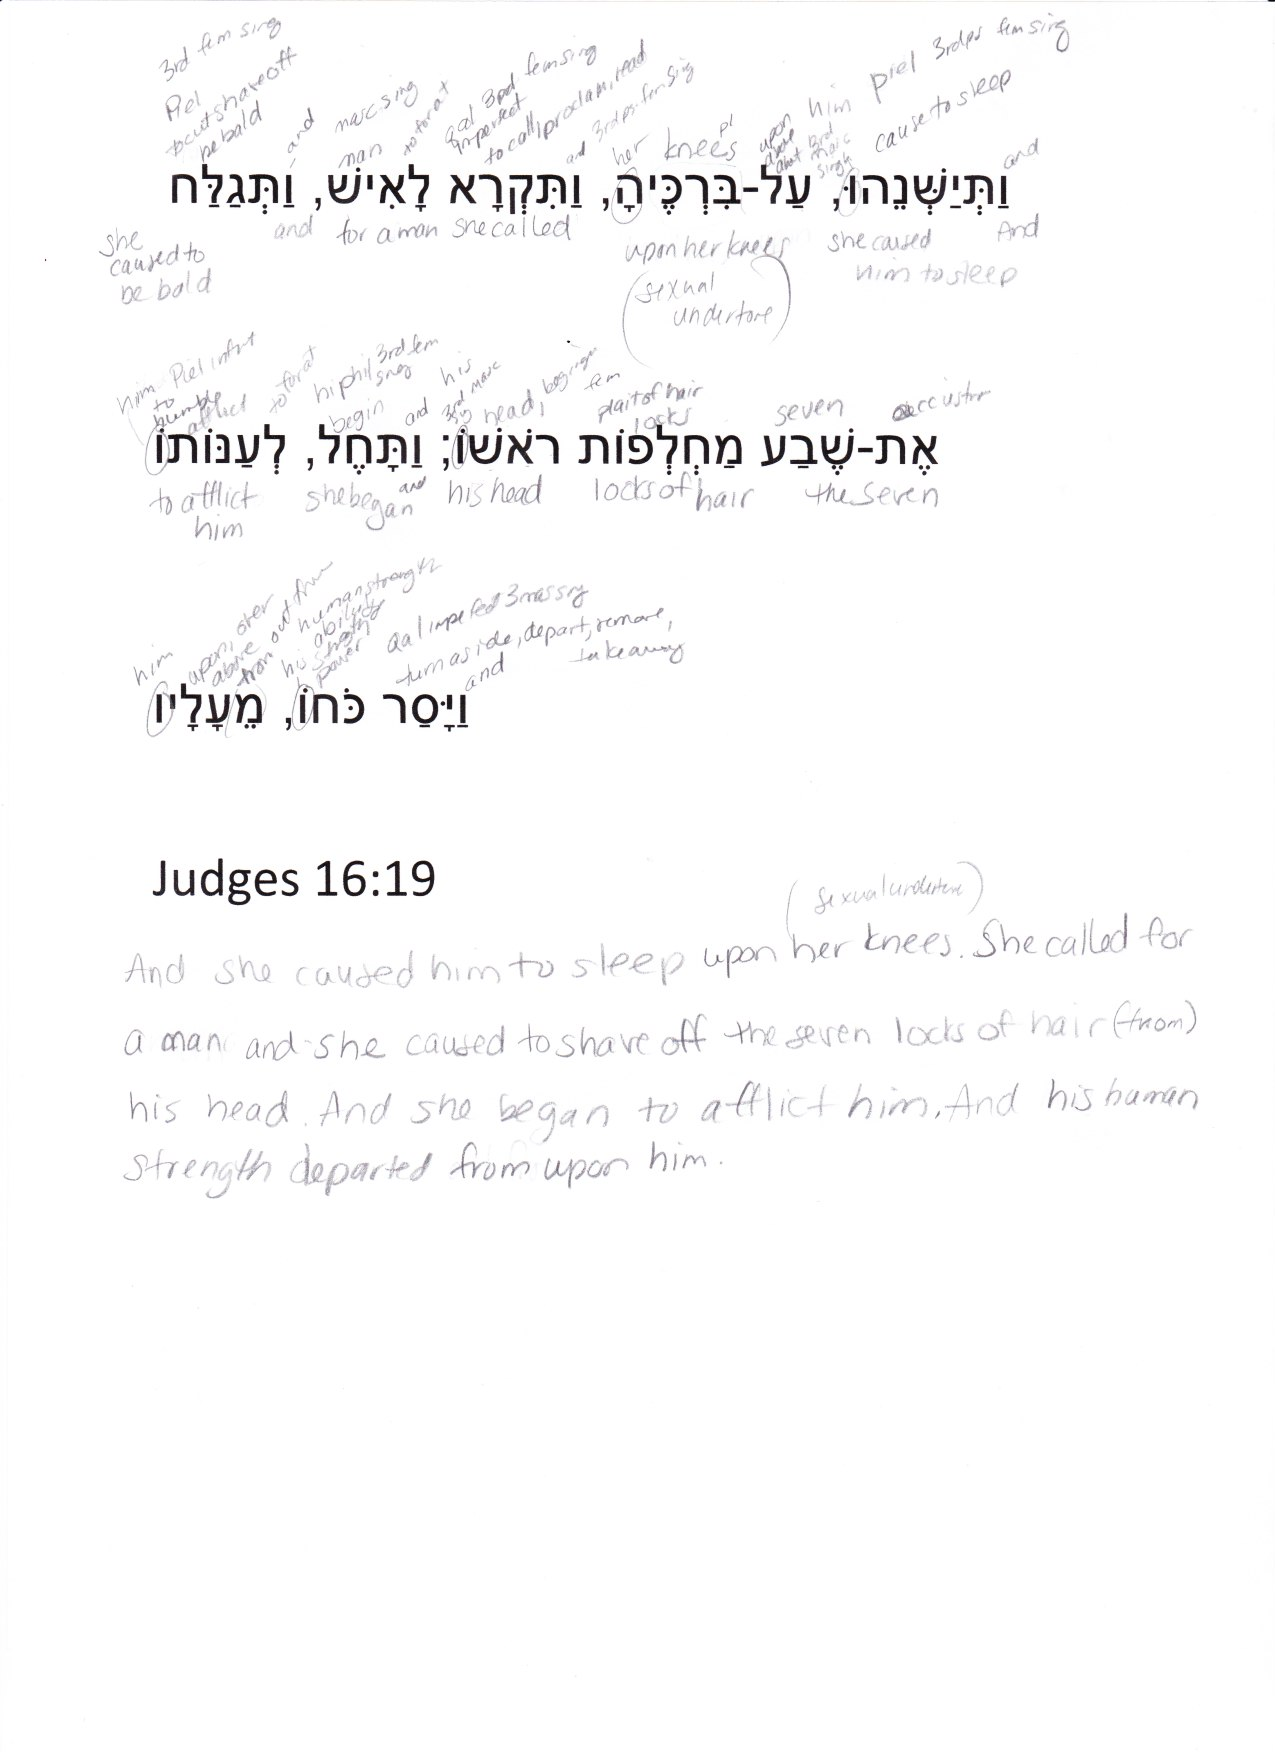 3rd fem sing
Piel
to cut shave off
be bald
and
masc sing
man
to for at
Qal 3rd femsing
imperfect
to call, proclaim, read
and 3rd ps fem sing
her knees pl
upon
above
about
him
3rd
masc
sing
Piel 3rd ps fem sing
cause to sleep
and
וַתְּיַשְּׁנֵהוּ, עַל-בִּרְכֶּיהָ, וַתִּקְרָא לָאִישׁ, וַתְּגַלַּח
And
she caused
him to sleep
upon her knees
(sexual
undertone)
for a man she called
and
she
caused to
be bald
him Piel infint
to
humble
afflict
to for at
hiphil 3rd fem
sing
begin
and
his
3rd masc
sg
head, beginnign
fem
plait of hair
locks
seven
אֶת-שֶׁבַע מַחְלְפוֹת רֹאשׁוֹ; וַתָּחֶל, לְעַנּוֹתוֹ
the seven
locks of hair
his head
and
she began
to afflict
him
him
upon, over
above
out from
from
human strength
ability
his strength
power
Qal imperfect 3 mas sing
turn aside, depart, remove,
take away
and
וַיָּסַר כֹּחוֹ, מֵעָלָיו
Judges 16:19
(sexual undertone)
And she caused him to sleep upon her knees. She called for
a man and she caused to shave off the seven locks of hair (from)
his head. And she began to afflict him. And his human
strength departed from upon him.